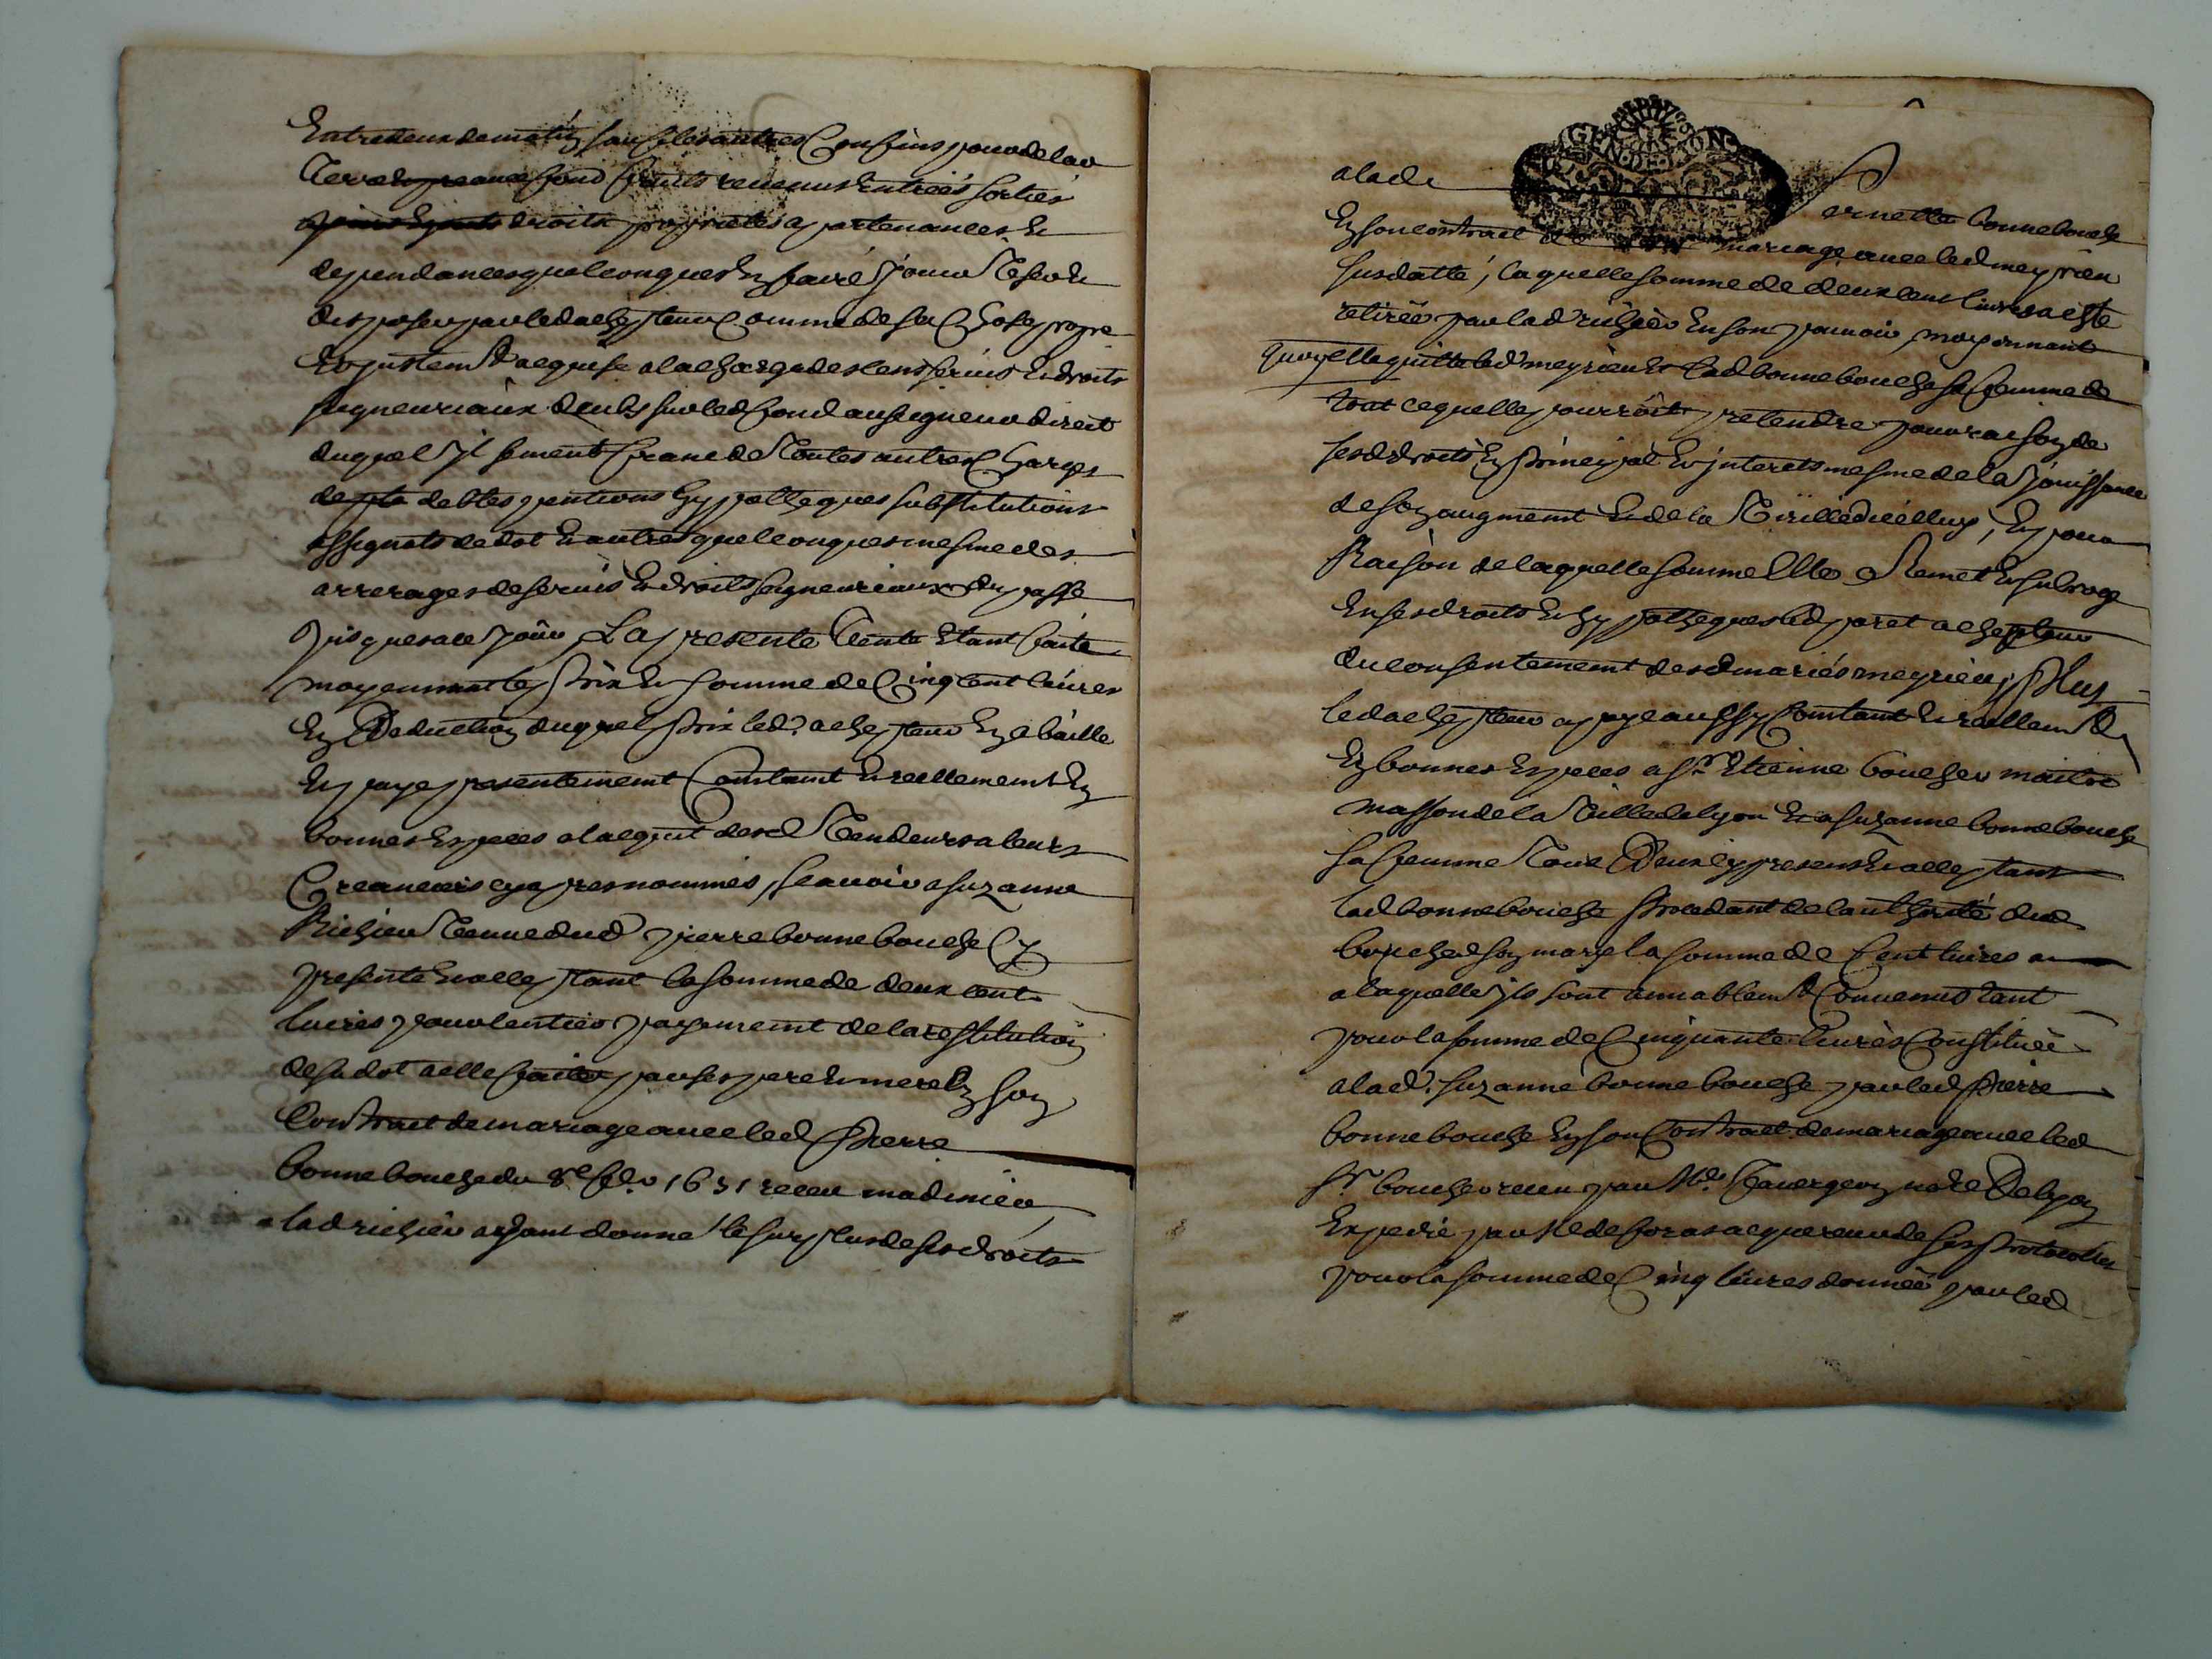 Entredeux de matin sauf les autres Confins pour de lad
Terre en preance fond fruits revenus Entreés sortiés
droits proprietés apartenances Et
dependances quelconques En faire Jouir Uses et
disposer par led achepteur Comme de sa Chose propre
Et justemt acquise a la charge des cens servis Et droits
seigneuriaux deubs sur led fond au seigneur direct
duquel Il sement franc de Toutes autres Charges
debtes pentions hyppotheques substitutions
assignats de dot Et autres quelconques mesme des
arrerages de servis Et droits seigneuriaux du passé
Jusques a ce Jour, La presente Vente Etant faite
moyennant le Prix Et somme de Cinq cent livres
En Deduction duquel Prix led. achepteur En a baillé
Et payé presentement Contant Et reellement En
bonnes Especes a lacquit desd Vendeurs a leurs
Creanciers cy apres nommés, scavoir a suzanne
Richier Veuve dud pierre bonnebouche Cy
presente Et acceptant la somme de deux cent
livres pour lentier payement de la restitution
de sa dot a elle faite par ses pere Et mere En son
Contract de mariage avec led Pierre
bonnebouche du 8e febv 1631 receu madinier
lad richier ayant donné le surplus de ses droits
a lade ernette bonnebouche
En son contract de mariage avec led meyrieu
susdatté, laquelle somme de deux cent livres a esté
retirée par lad richier En son pouvoir moyennant
quoy Elle quitte led meyrieu Et lad bonnebouche sa femme de
Tout ce quelle pourroit pretendre pour raison de
sesd droits En Principal Et interets mesme de la Jouissance
de son augment Et de la Pension viduelle, Et pour
Raison de laquelle somme Elle Remet Et subroge
En ses droits Et hyppotheques led paret achepteur
du consentement desd mariés meyrieu, Plus
led achepteur a payé aussy Contant Et reellemt
En bonnes Especes a sr Etienne boucher maitre
masson de la Ville de lyon Et a suzanne bonnebouche
sa femme Tous Deux cy presens Et acceptans
lad bonnebouche Procedant de lauthorité dud
boucher son mary la somme de Cent livres
a laquelle ils sont aimablemt Convenus tant
pour la somme de Cinquante livres Constituée
a lad. suzanne bonnebouche par led Pierre
bonnebouche En son Contract de mariage avec led
Sr boucher receu par Me favergeon nore De lyon
Expedié par Me deforas acquereur de ses Protocolles
pour la somme de Cinq livres donnée par led